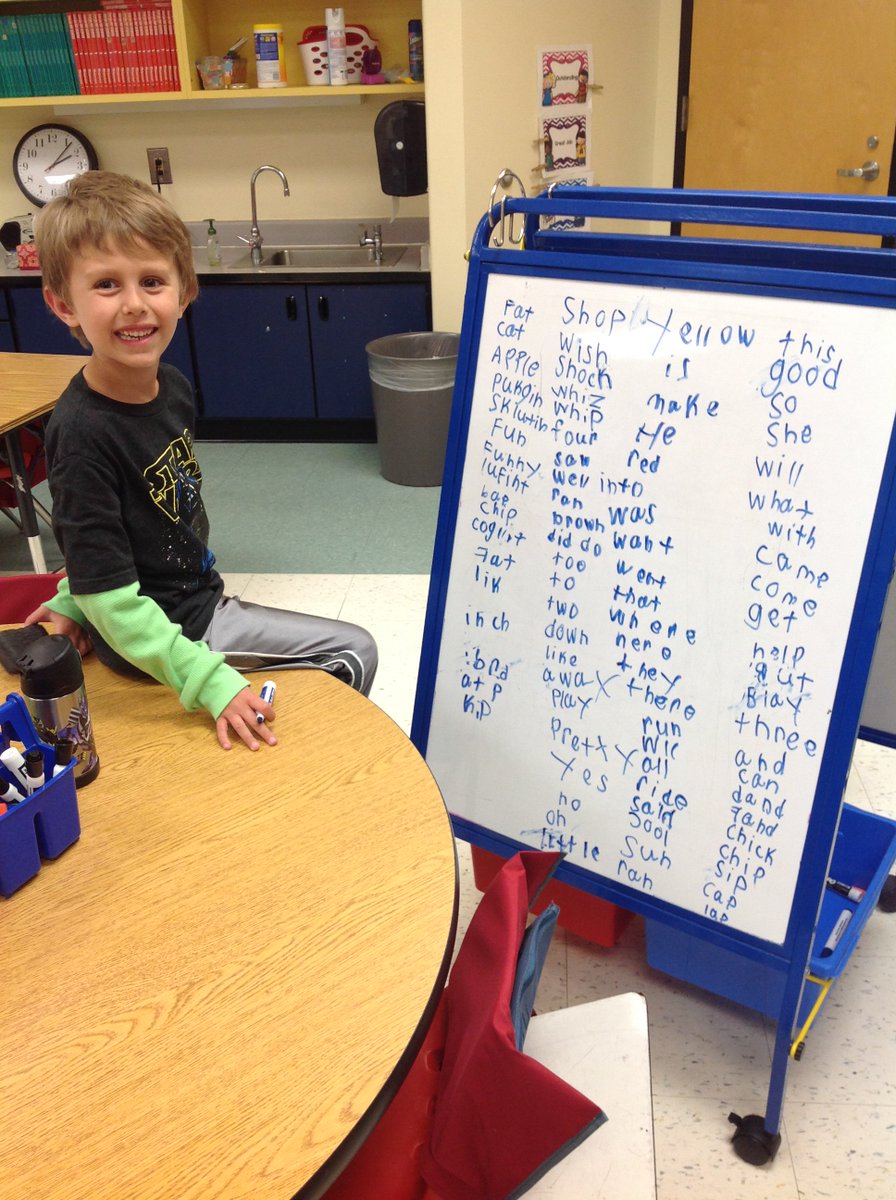 Outstanding
Great Job
STAR
Fat
cat
APPLE
pukgin
Fun
Funny
chip
Fat
lik
inch
kip
Shop
Wish
Shock
whiz
whip
four
saw
well
ran
brown
did do
too
to
two
down
like
away
Play
Pretty
Yes
no
oh
little
Yellow
is
make
He
red
into
was
want
went
that
where
here
they
there
run
all
ride
said
Sun
ran
this
good
so
She
will
what
with
came
come
get
help
three
and
can
chick
chip
sip
cap
lap